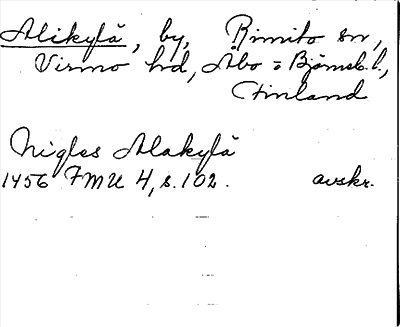 Alikylä, by, Rimito sn,
Virmo hd, Åbo o Björneb. l.,
Finland
Nigles Alakylä
1456 FMU 4, s. 102. avskr.